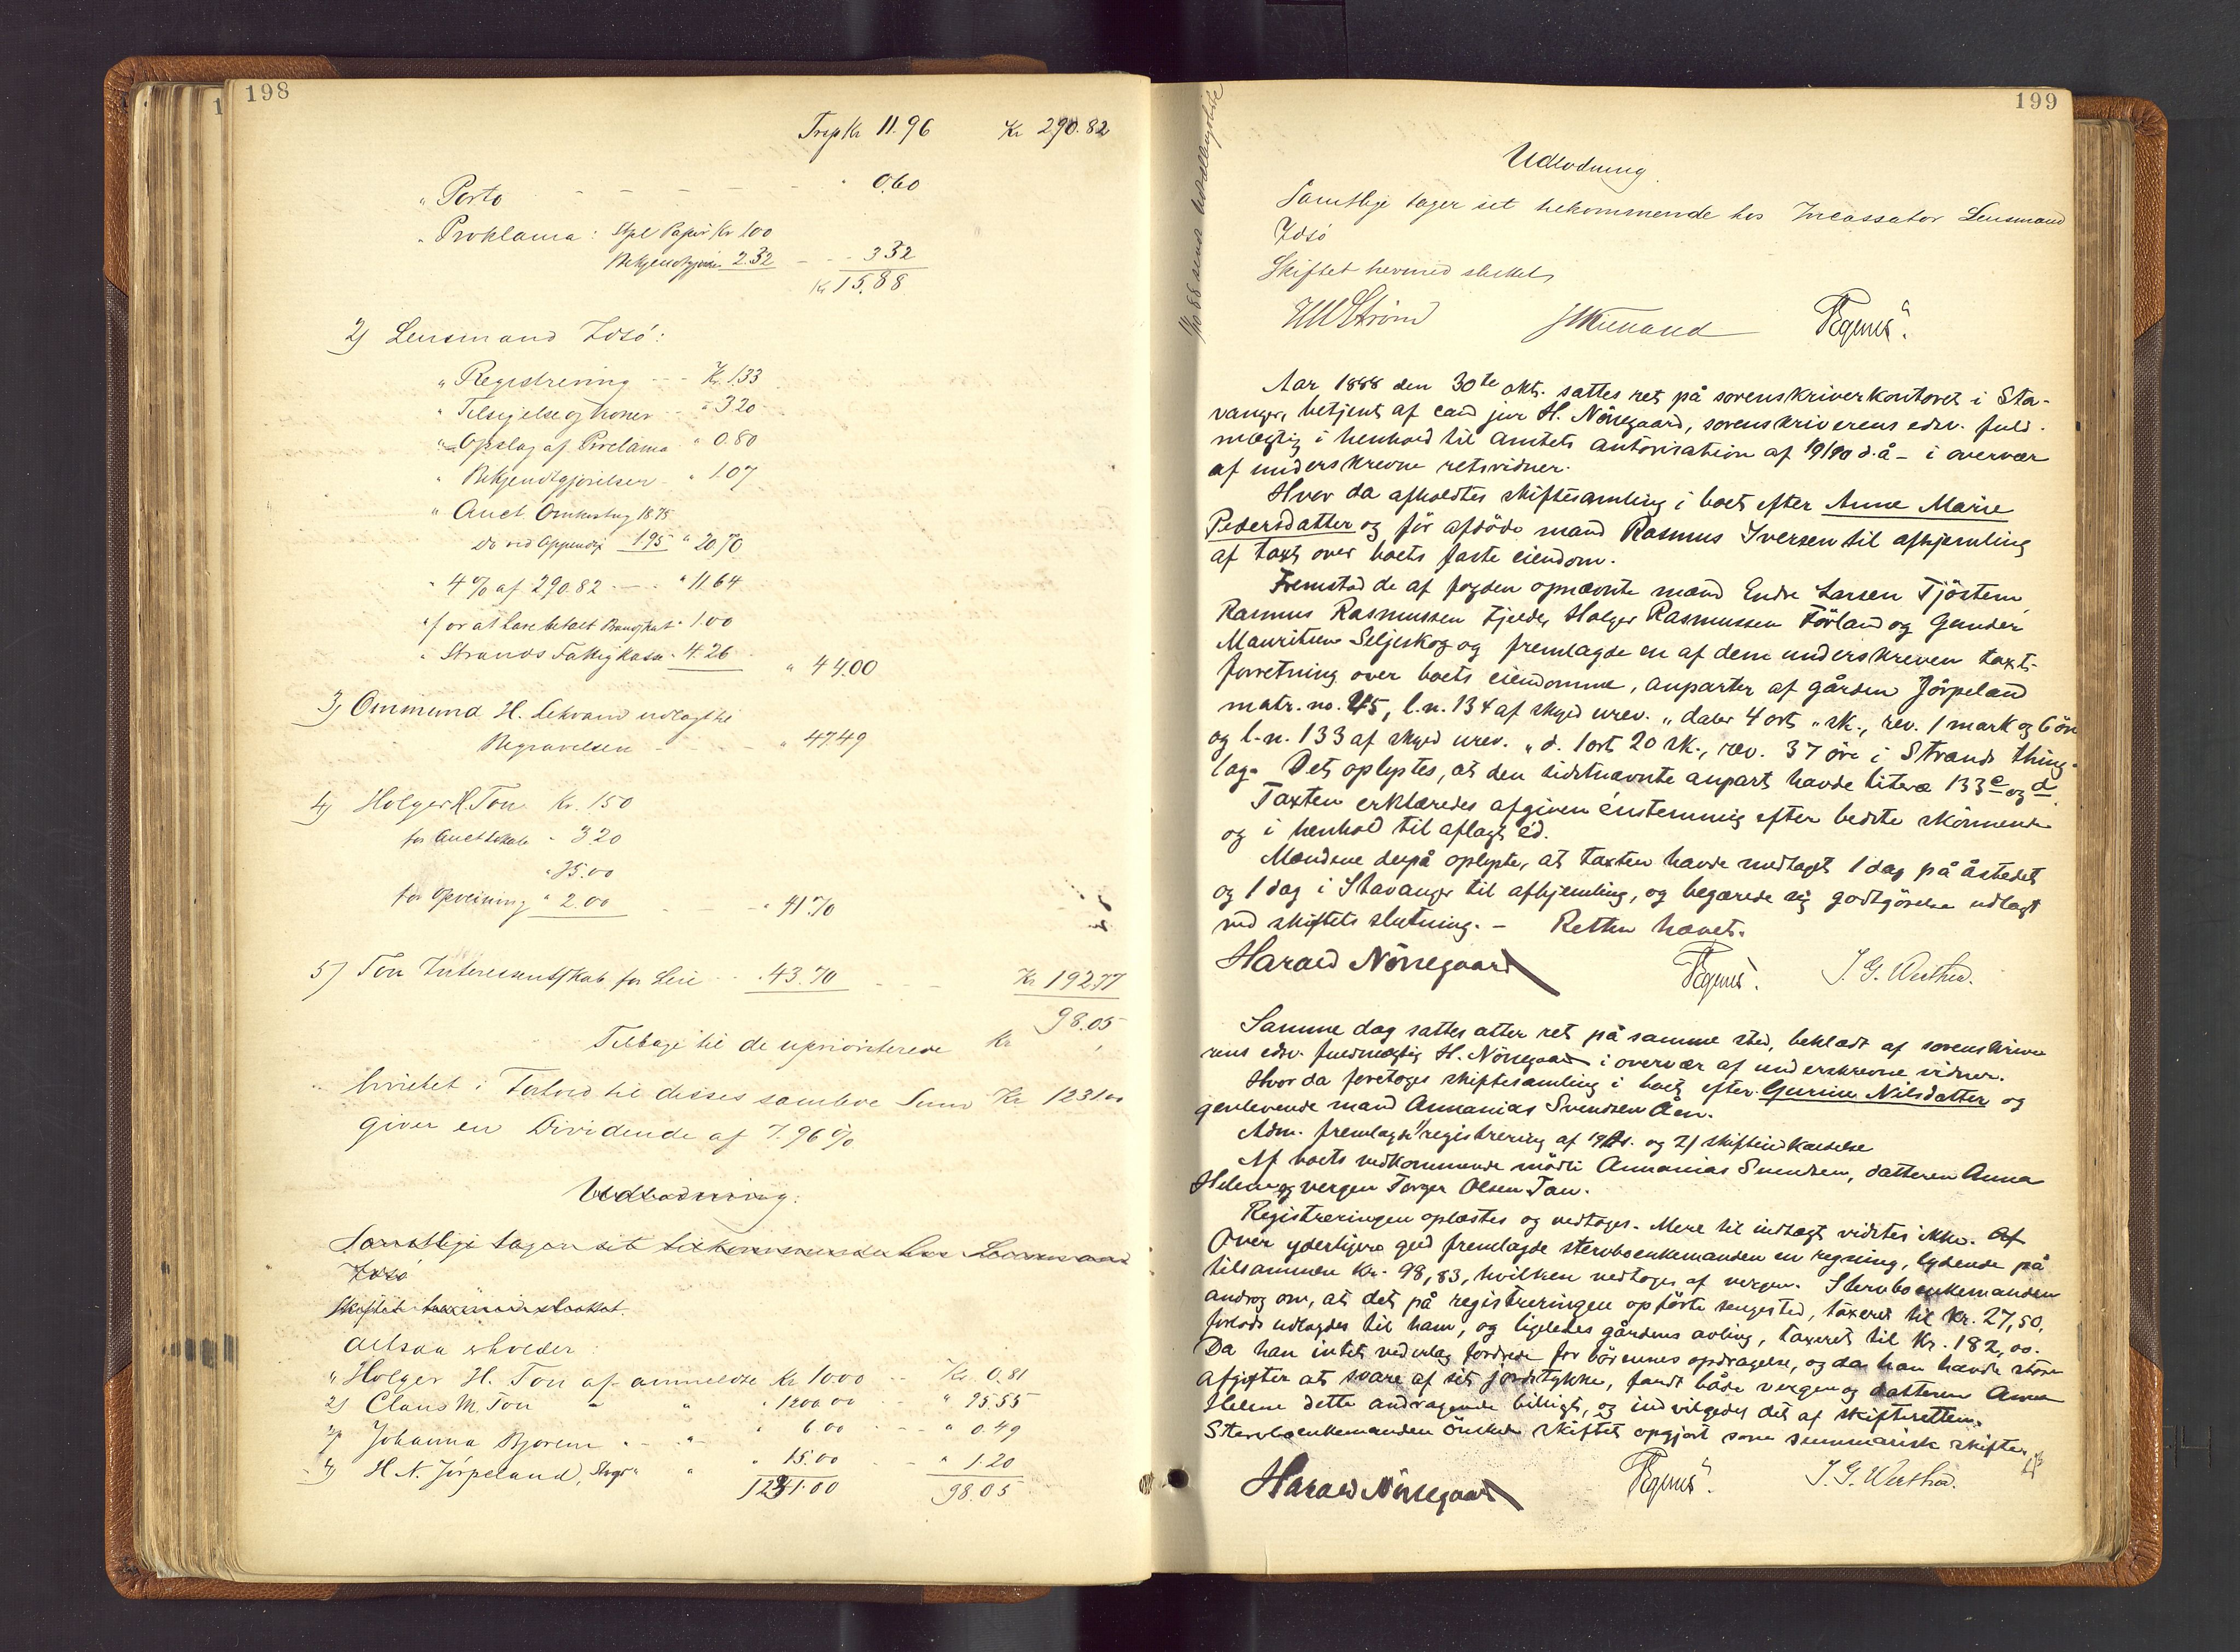 198
Trsp Kr 11.96 Kr 290.82
" Porto - - - - - " 0.60
" Proklama: Stpl Papir Kr 1.00
Bekjendtgjør. 2.32 - - 3 32
Kr 15.88
2) Lensmand Idsø:
" Registrering - - Kr. 1.33
" Tilsigelse og Koner - " 3.20
" Opslag af Proclama " 0.80
" Bekjendtgjørelser - " 1.07
" Auct. Omkostng 18.75
Do ved Appendix 1.95 " 20.70
" 4 % af 290.82 - - " 11.64
" for at have betalt " 1.00
" Strands Fattigkasse " 4.26 " 44.00
3) Ommund H. Lekvam udlagt til
Begravelsen - - - - " 47.49
4) Holger H. Tou Kr. 1.50
for Auct.lokale " 3.20
" 35.00
for Opveining " 2.00 - - - " 41.70
5) Tou Interessentskab for Leie - - " 43.70 - - - Kr 192.77
98.05
Tilbage til de uprioriterede Kr
hvilket i Forhold til disses samlede Sum Kr 1231.00
giver en Dividende af 7.96 %
Udlodning.
Samtlige tager sit tilkommende hos Lensmand
Idsø
Skiftet hermed sluttet.
Altsaa erholder:
" Holger H. Tou af anmeldte Kr 10.00 - - Kr. 0.81
2) Claus M. Tou " " " 1200.00 - - " 95.55
3) Johanna Bjoreim " - " " 6.00 - - " 0.49
4) H. N. Jørpeland, Skgr " " " 15.00 - - " 1.20
1231.00 98.05
199
Udlodning.
Samtlige tager sit tilkommende hos Incassator Lensmand
Idsø
Skiftet hermed sluttet.
HWStrøm JKielland Tegner.
Aar 1888 den 30te okt. sattes ret på sorenskriverkontoret i Sta-
vanger, betjent af cand jur H. Nörregaard, sorenskriverens edsv. fuld-
mægtig i henhold til amtets autorisation af 19/10 d.å – i overvær
af underskrevne retsvidner.
Hvor da afholdtes skiftesamling i boet efter Anne Marie
Pedersdatter og för afdöde mand Rasmus Iversen til afhjemling
af taxt over boets faste eiendom.
Fremstod de af fogden opnævnte mænd Endre Larsen Tjöstem,
Rasmus Rasmussen Fjelde, Holger Rasmussen Förland og Gunder
Mauritsen Seljeskog og fremlagde en af dem underskreven taxt-
forretning over boets eiendomme, anparter af gården Jörpeland
matr. no. 45, l.n. 134 af skyld urev. „ daler 4 ort „ sk., rev. 1 mark og 6 öre
og l.n. 133 af skyld urev. „ d. 1 ort 20 sk., rev. 37 öre i Strands thing-
lag. Det oplystes, at den sidstnævnte anpart havde litera 133 c og d.
Taxten erklæredes afgiven énstemmig efter bedste skjönnende
og i henhold til aflagt éd.
Mændene derpå oplyste, at taxten havde medtaget 1 dag på åstedet
og 1 dag i Stavanger til afhjemling, og begærede sig godtgörelse udlagt
ved skiftets slutning. – Retten hævet.
Harald Nörregaard Tegner. J. G. Westhed.
Samme dag sattes atter ret på samme sted, beklædt af sorenskrive-
rens edsv. fuldmægtig H. Nörregaard i overvær af underskrevne vidner.
Hvor da foretoges skiftesamling i boet efter Gurine Nilsdatter og
genlevende mand Annanias Svendsen Åen.
Adm. fremlagde 1) registrering af 19/ ds. og 2) skifteindkaldelse
Af boets vedkommende mödte Annanias Svendsen, datteren Anna
Helene og vergen Torger Olsen Tau.
Registreringen oplæstes og vedtoges. Mere til indtægt vidstes ikke. Af
Over yderligere gjeld fremlagde stervboenkemanden en regning, lydende på
tilsammen Kr. 98,83, hvilken vedtoges af vergen. Stervboenkemanden
androg om, at det på registreringen opförte sengested, taxeret til Kr. 27,50,
forlods udlagdes til ham, og ligeledes gårdens avling, taxeret til Kr. 182,00.
Da han intet vederlag fordrede for börnenes opdragelse, og da han havde store
afgifter at svare af sit jordstykke, fandt både vergen og datteren Anna
Helene dette andragende billigt, og indvilgedes det af skifteretten.
Stervboenkemanden önskede skiftet opgjort som summarisk skifte.
Harald Nörregaard Tegner. J. G. Westhed.